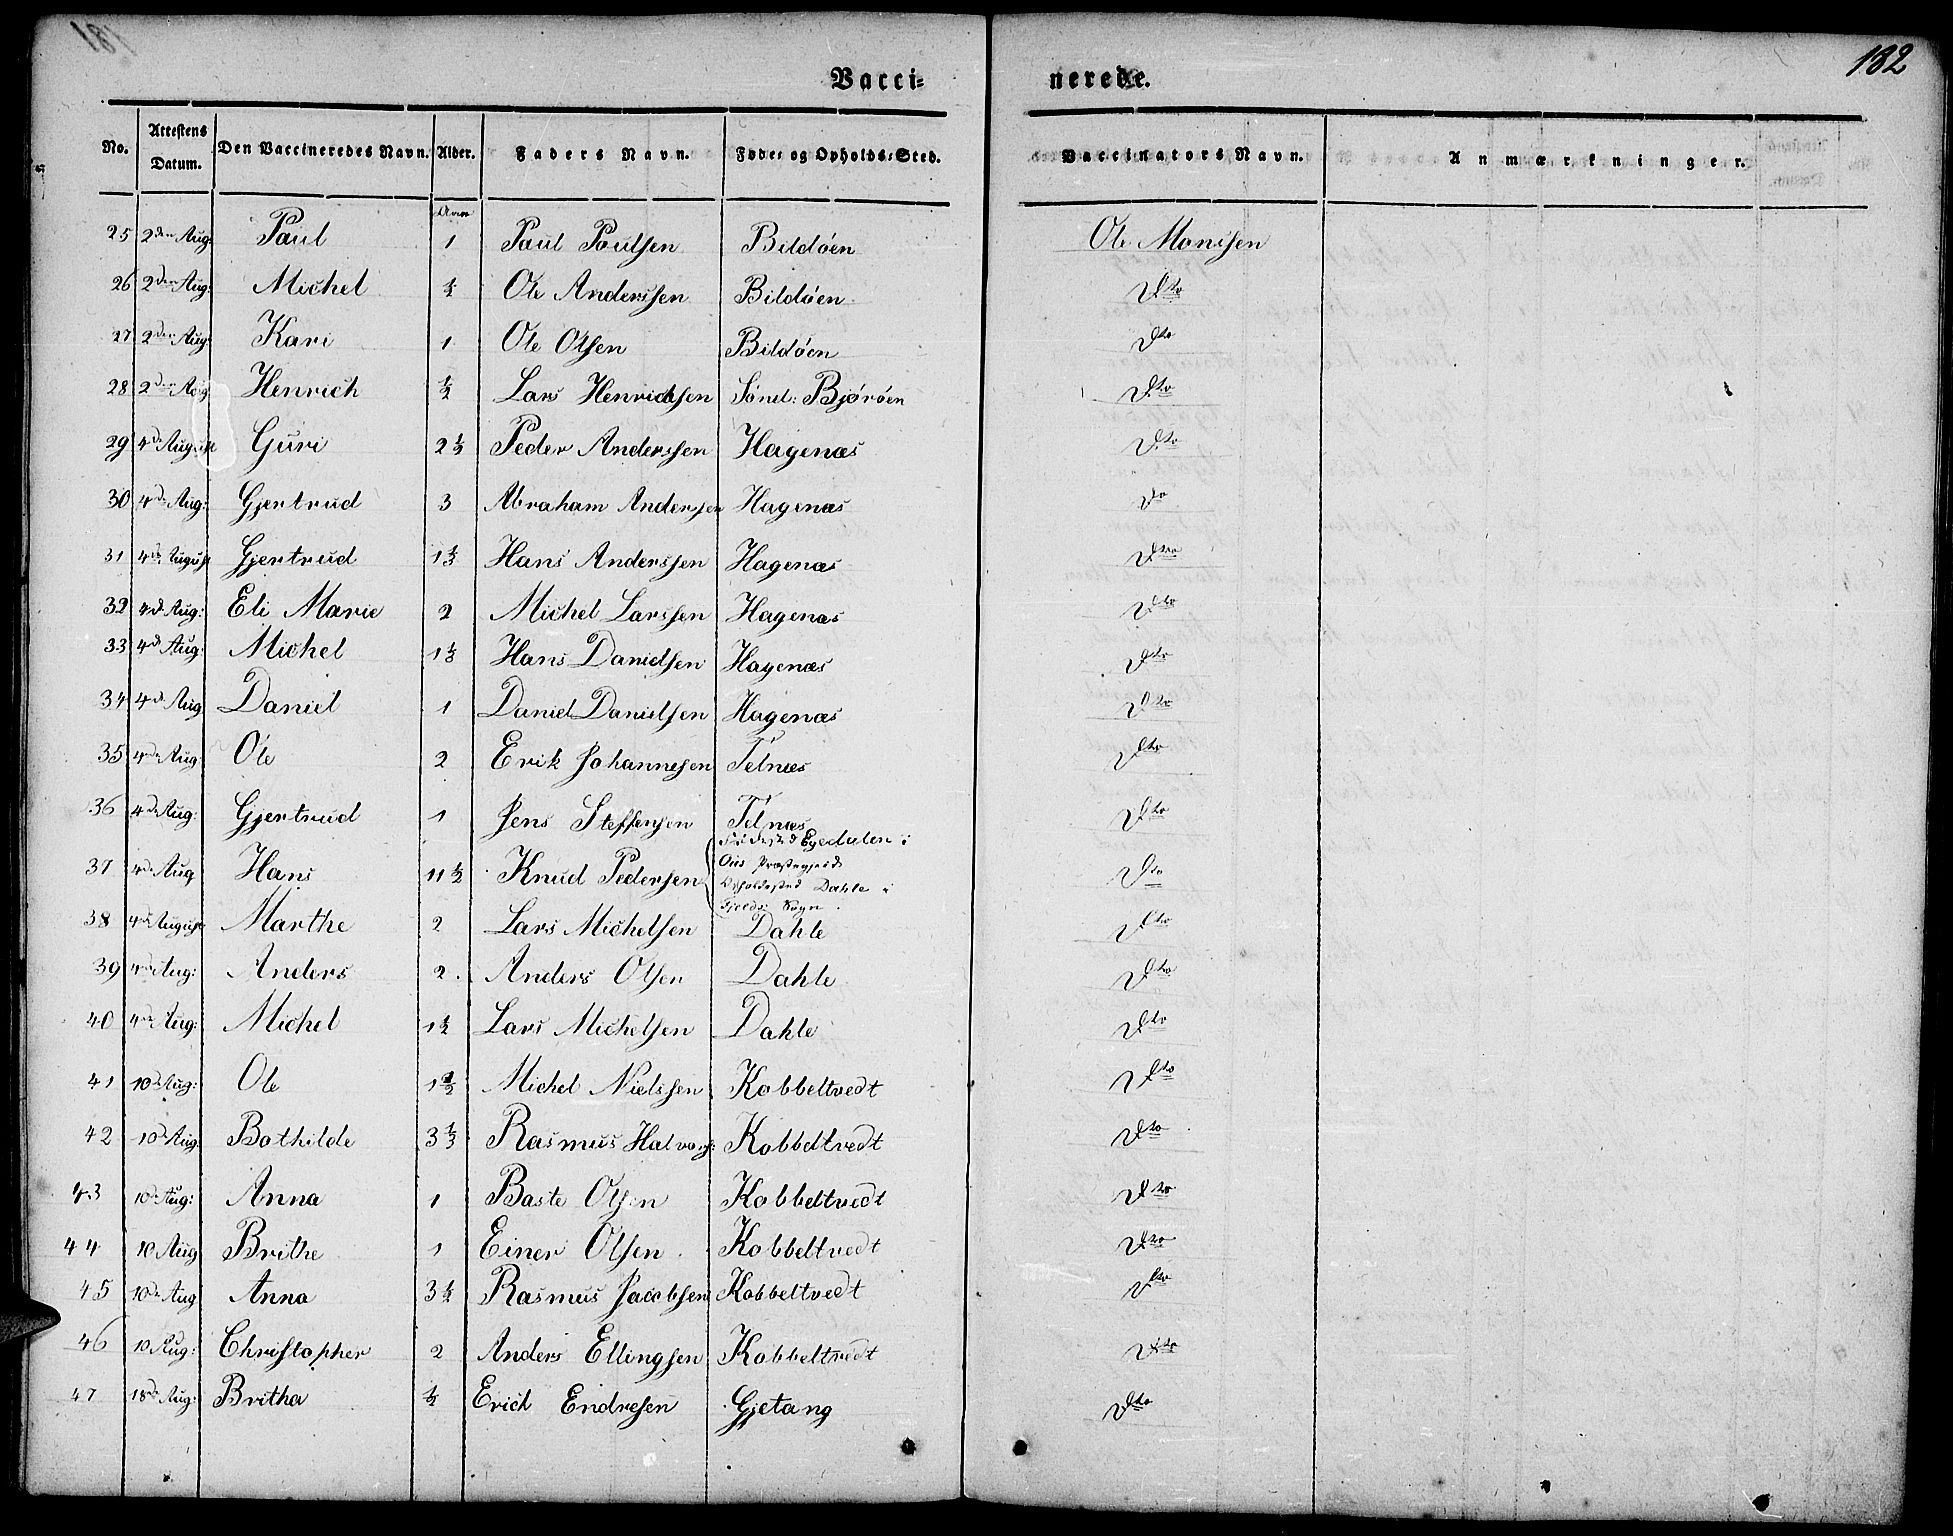 182
Vacci= nerede.
No. Attestens Datum. Den Vaccineredes Navn. Alder. Faders Navn. Føde= og Opholds=Sted. Vaccinators Navn. Anmærkninger.
25 2den Aug: Paul 1 Paul Poulsen Bildøen Ole Monssen
26 2den Aug: Michel ½ Ole Anderssen Bildøen Dto
27 2den Aug: Kari 1 Ole Olsen Bildøen Dto
28 2den Aug: Henrich ½ Lars Henrichsen Sönd: Bjørøen Dto
29 4d August Guri 2½ Peder Anderssen Hagenæs Dto
30 4d Aug: Gjertrud 3 Abraham Andersen Hagenæs Do
31 4d August Gjertrud 1½ Hans Anderssen Hagenæs Dto
32 4d Aug: Eli Marie 2 Michel Larssen Hagenæs Dto
33 4d Aug: Michel 1½ Hans Danielsen Hagenæs Dto
34 4d Aug Daniel 1 Daniel Danielsen Hagenæs Dto
35 4d Aug: Ole 2 Erik Johannesen Telnæs Dto
36 4d Aug: Gjertrud 1 Jens Steffensen Telnæs Dto
37 4d Aug Hans 11½ Knud Pedersen Födested Egedalen i Dto
Ous Præstegjeld
Opholdssted Dahle i
Fjelds Sogn.
38 4d August Marthe 2 Lars Michelsen Dahle Dto
39 4d Aug: Anders 2. Anders Olsen Dahle Dto
40 4d Aug: Michel 1½ Lars Michelsen Dahle Dto
41 10d Aug: Ole 1½ Michel Nielssen Kobbeltvedt Dto
42 10d Aug: Bothilde 3⅓ Rasmus Halvors: Kobbeltvedt Dto
43 10d Aug: Anna 1 Baste Olsen Kobbeltvedt Dto
44 10 Aug Brithe 1 Einer Olsen Kobbeltvedt Dto
45 10d Aug Anna 3½ Rasmus Jacobsen Kobbeltvedt Dto
46 10 Aug: Christopher 2 Anders Ellingsen Kobbeltvedt Dto
47 18d Aug: Britha ½ Erich Endresen Gjetang Dto